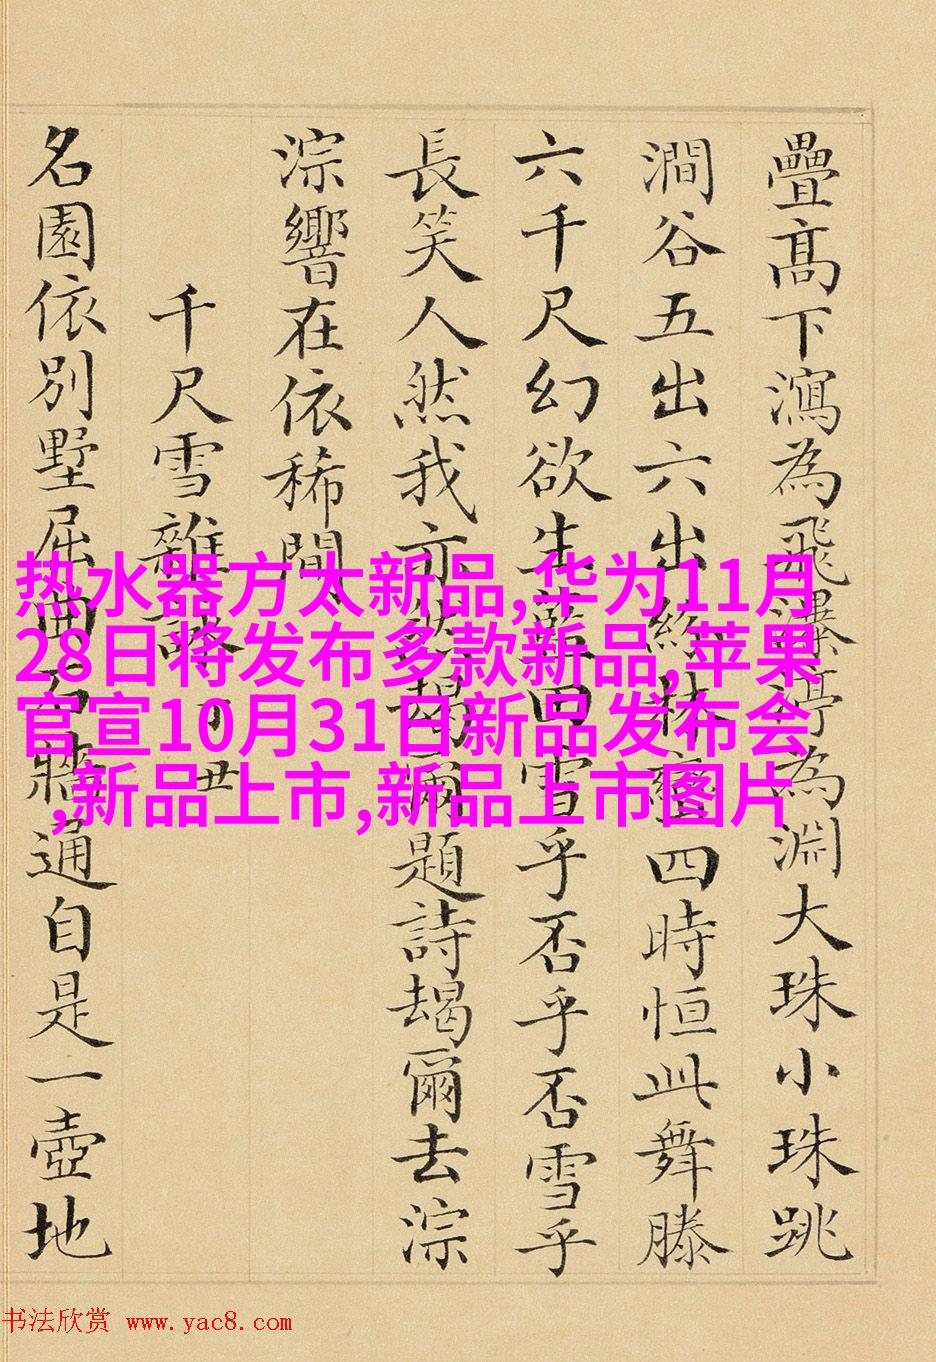 疊髙下瀉為飛瀑渟為淵大珠小珠跳
澗谷五出六出紛林壑四時恒此舞滕
六千尺幻欲生回雪乎否乎否雪乎
長笑人然我亦然朅爾題詩朅爾去淙
淙響在依稀間
千尺雪雜詠 丁丑
名園依別墅屈曲石牆通自是一壺地
热水器方太新品,华为11月
28日将发布多款新品,苹果
官宣10月31日新品发布会
,新品上市,新品上市图片
书法欣赏 www.yac8.com